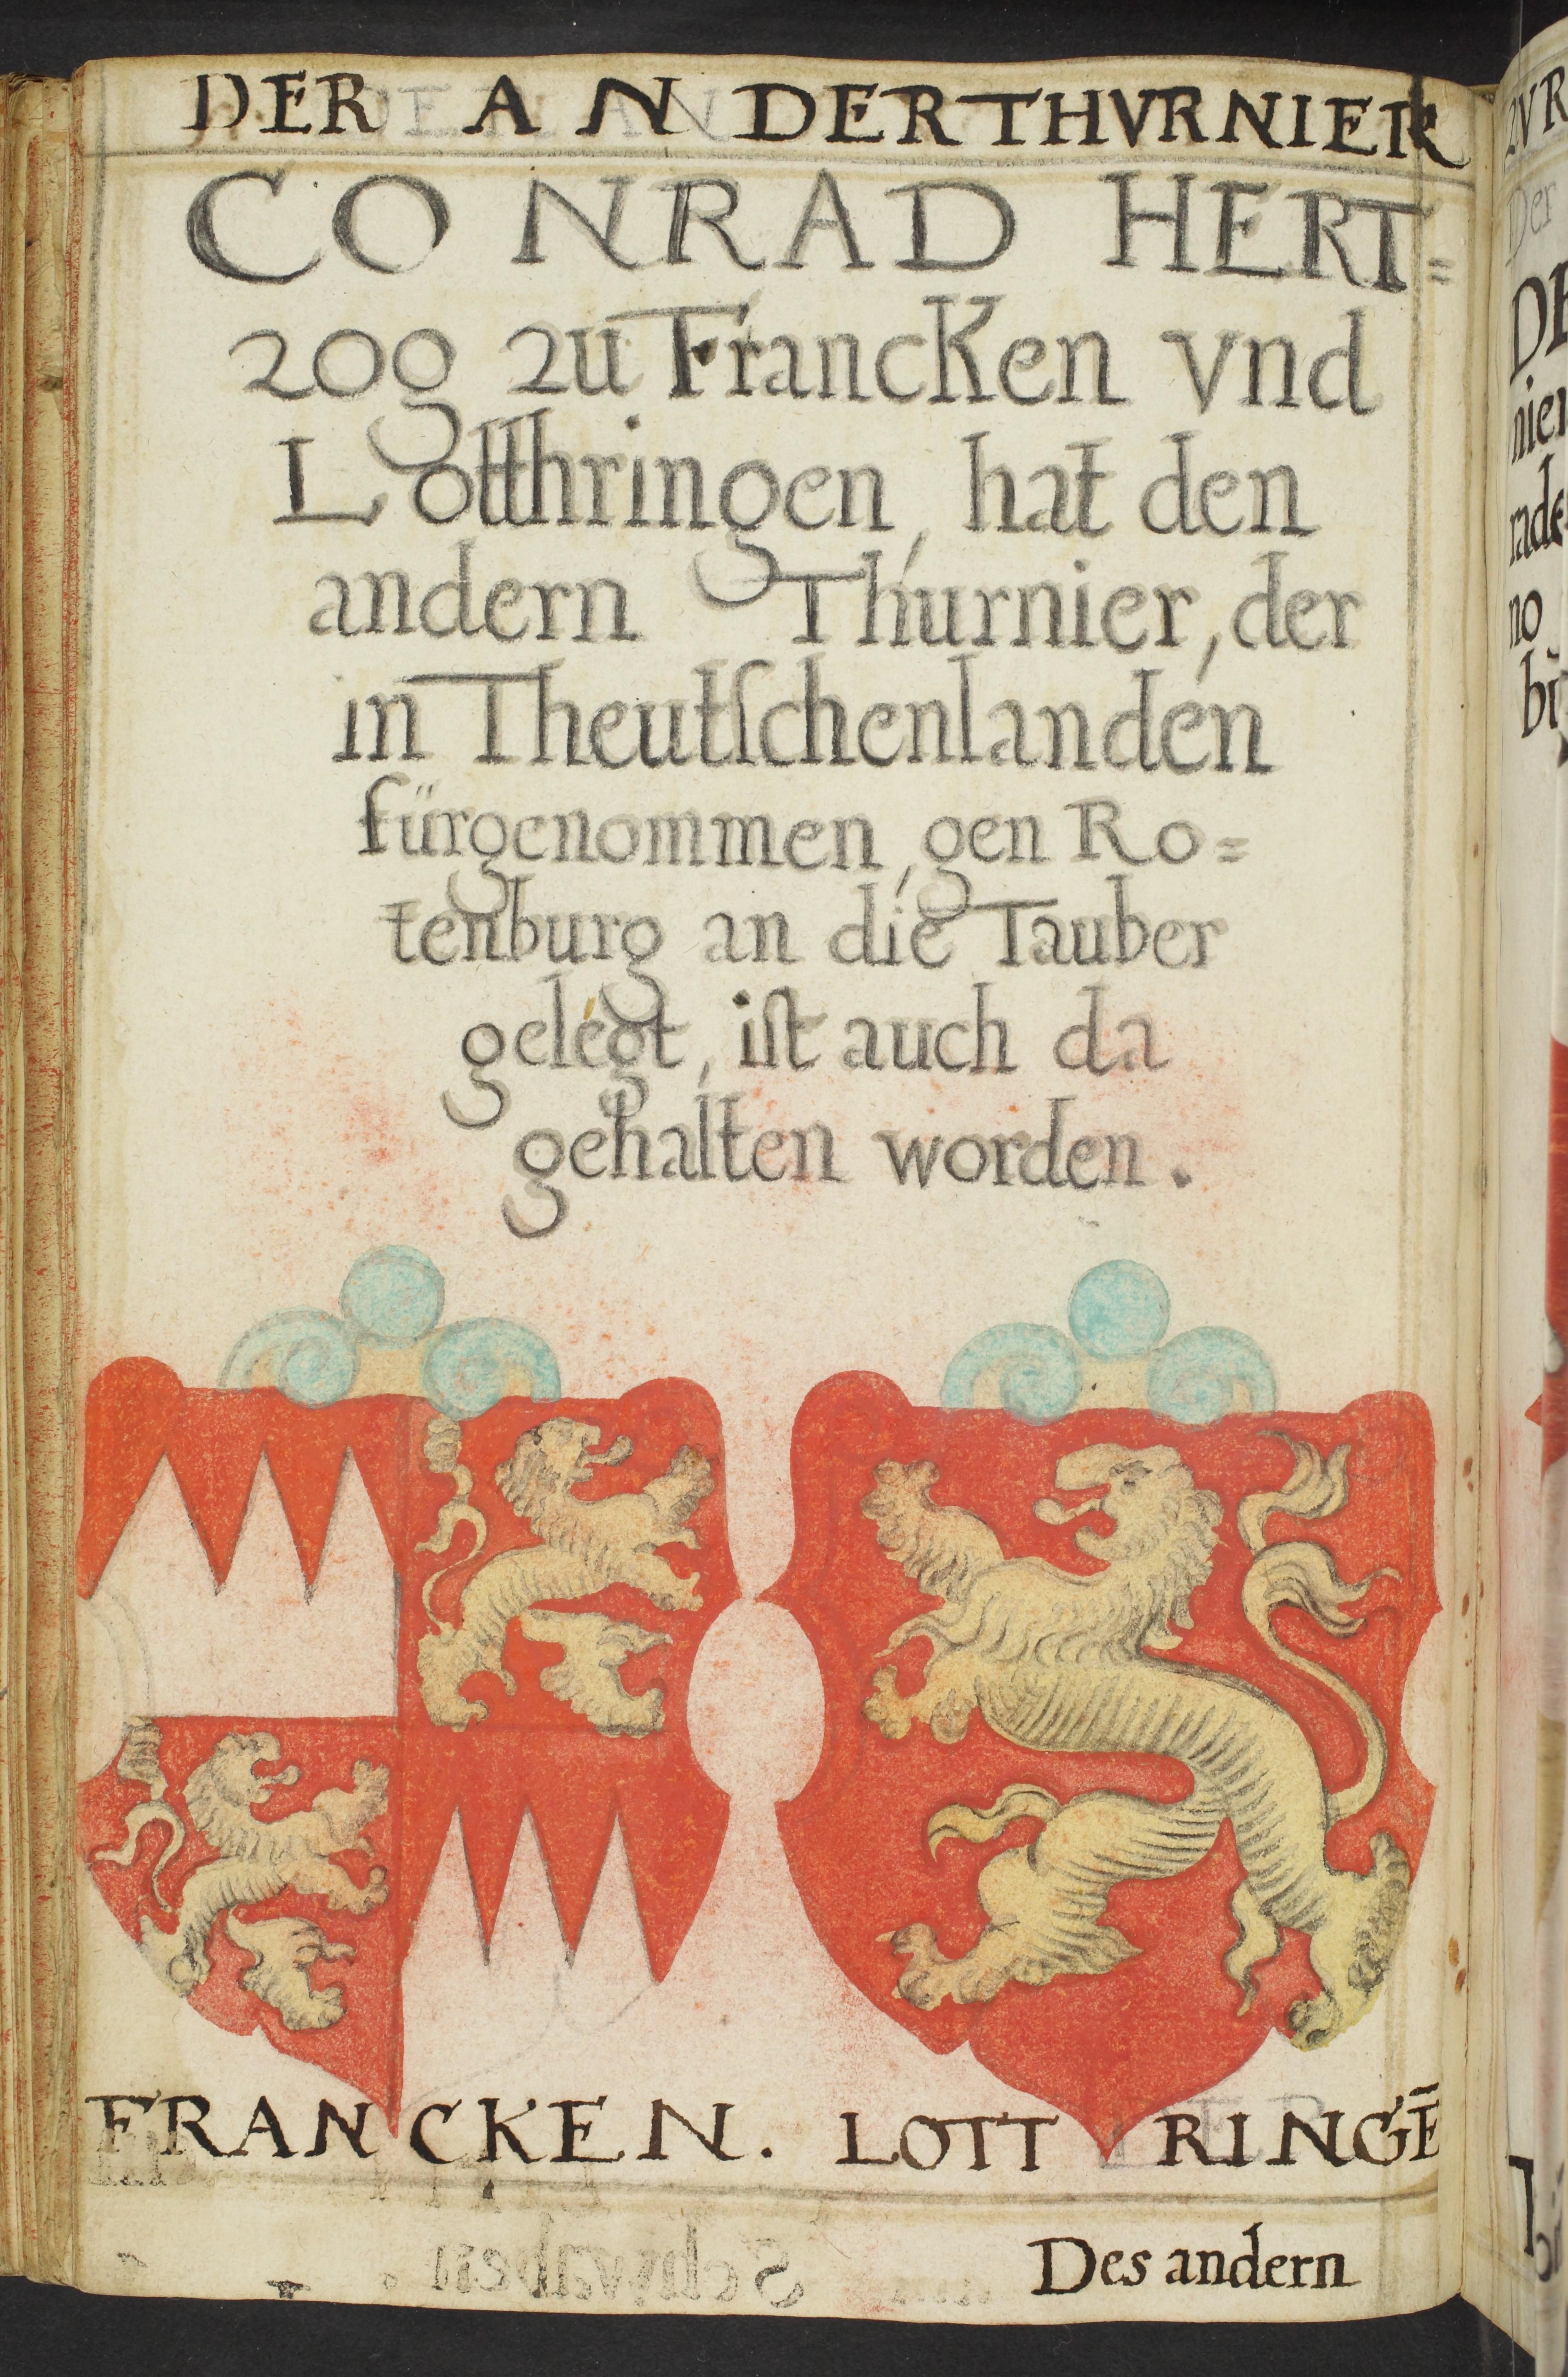 DER ANDER THVRNIER
CONRAD HERT=
zog zu Francken vnd
Lottthringen, hat den
andern Thurnier, der
in Theutſchenlanden
fürgenommen, gen Ro=
tenburg an die Tauber
gelegt, iſt auch da
gehalten worden.
FRANCKEN. LOTTRINGE̅
Des andern
Schwaben